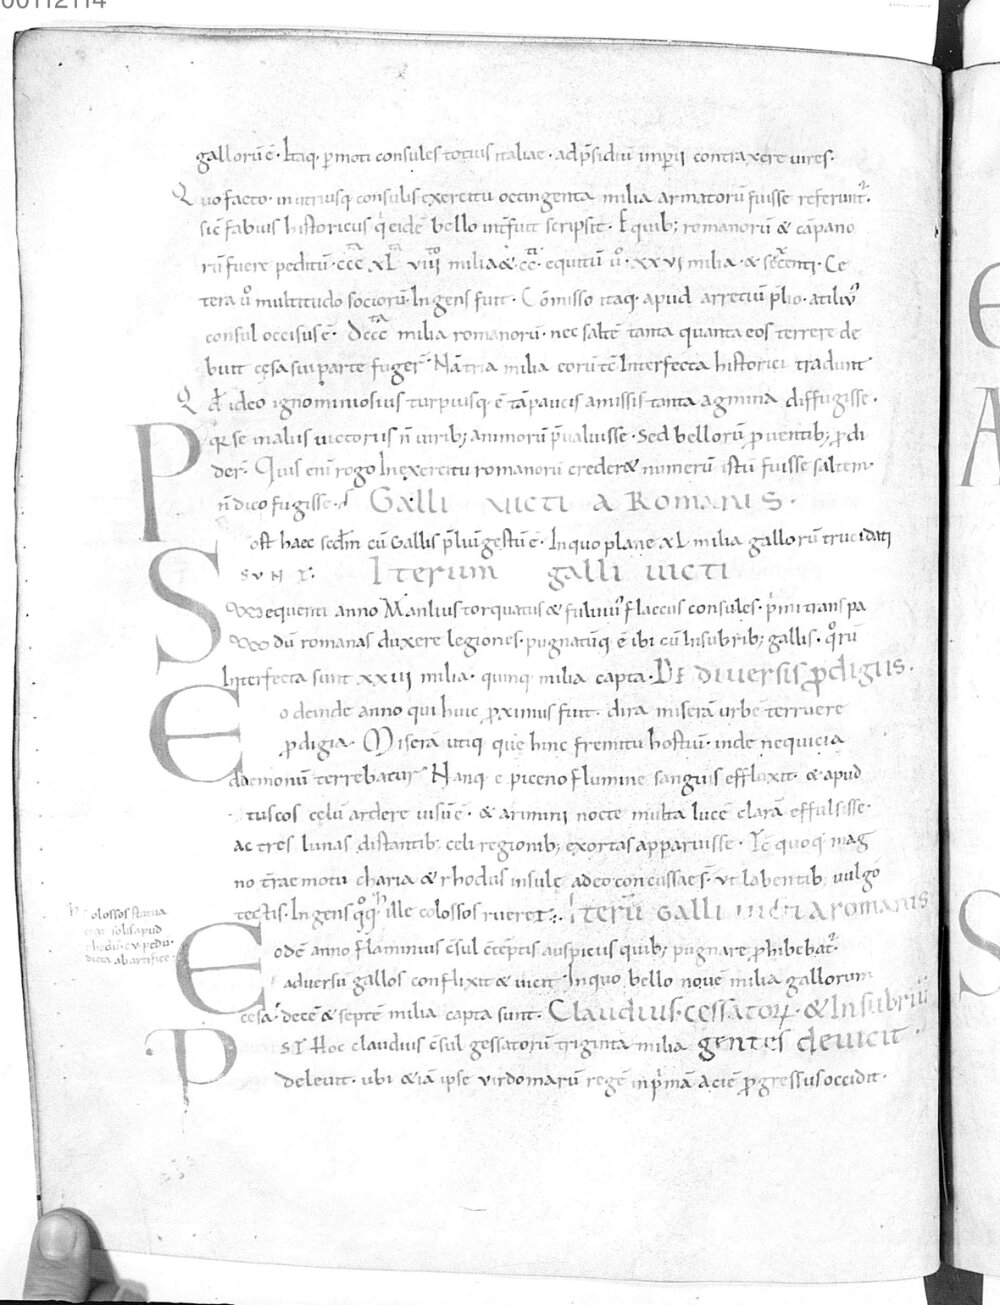 00112114
galloru̅ e̅. Itaq. p̱moti consules totius italiae. ad p̅sidiu̅ imp̱ii contraxere uires.
Quo facto. in utriusq; consulis exercitu octingenta milia armatoru̅ fuisse referunt̃.
sic̅ fabius historicus q̇ eide̅ bello int̅fuit scripsit. Equib; romanoru̅ & ca̅pano
ru̅ fuere peditu̅. ccc xL viii milia & cc. equitu̅ u͛. xxvi milia. & secenti. Ce
tera u͛ multitudo socioru̅. Ingens fuit. Co̅misso itaq. apud arretiu̅ p̅lio. atilius
consul occisus e̅. Dccc milia romanoru̅. nec salte̅ tanta quanta eos terrere de
buit cęsa sui parte fuger̅. Na̅ tria milia eoru̅ tc̅ Interfecta historici tradunt
Qd̅ ideo ignominiosius turpiusq; e̅ ta̅ paucis amissis tanta agmina diffugisse.
q̱ se in aliis uictoriis n̅ uirib; animoru̅ p̅ualuisse. Sed belloru̅ ꝓuentib; ꝓdi
der̅. Quis eni̅ rogo In exercitu romanoru̅ creder& numeru̅ istu̅ fuisse saltem
n̅ dico fugisse. Galli uicti a Romanis.
Post haec secd̅m cu̅ Gallis p̅liu̅ gestu̅ e̅. In quo plane xL milia galloru̅ trucidati
sunt. Iterum galli uicti
Sequenti anno Manlius torquatus & fuluius flaccus consules. p̍mi trans pa
du̅ romanas duxere legiones. pugnatu̅q; e̅ ibi cu̅ Insubrib; gallis. q͛ru̅
Interfecta sunt xxiii milia. quinq; milia capta. De diuersis ꝓdigiis.
Eo deinde anno qui huic ꝓximus fuit. dira misera̅ urbe̅ terruere
ꝓdigia. Misera̅ utiq; que hinc fremitu hostiu̅. inde nequicia
daemonu̅ terrebatur. Nanq; e piceno flumine sanguis effluxit. & apud
tuscos celu̅ ardere uisu̅ e̅. & arimini nocte multa luce̅ clara̅ effulsisse.
ac tres lunas distantib; celi regionib; exortas apparuisse. Tc̅ quoq; mag
no t̅rae motu charia & rhodus insule adeo concussae s̅. ut labentib; uulgo
tectis. Ingens q͛q; ille colossos rueret. Iteru̅ Galli uicti a romanis
olossos statua
erat solis apud
rhodu̅. cv pedu̅.
dicta ab artifice
Eode̅ anno flaminius c̅sul c̅te̅ptis auspiciis quib; pugnare ꝓhibebat̃.
aduersu̅ gallos conflixit & uicit. In quo bello noue̅ milia gallorum
cesa. dece̅ & septe̅ milia capta sunt. Claudius. cessatoꝝ. & Insubriu̅
Post Hoc claudius c̅sul gessatoru̅ triginta milia gentes deuicit.
deleuit. ubi &ia̅ ipse virdomaru̅ rege̅ in p̍ma̅ acie̅ ꝓgressus occidit.